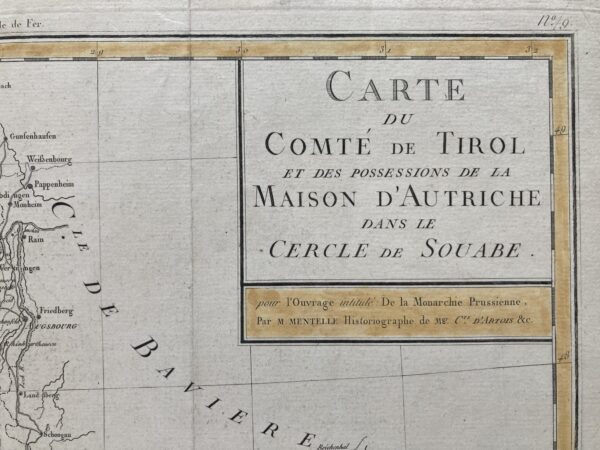 de Fer.
No. 9.
29
30
31
32
CARTE
DU
COMTÉ DE TIROL
ET DES POSSESSIONS DE LA
MAISON D'AUTRICHE
DANS LE
CERCLE DE SOUABE.
pour l'Ouvrage intitulé De la Monarchie Prussienne,
Par M. MENTELLE Historiographe de MGR. CTE. D'ARTOIS &c.
49
48
Gunsenhausen
Weißenbourg
Pappenheim
Monheim
Rain
Friedberg
AUGSBOURG
Landsberg
Schongau
CLE. DE BAVIERE
Reichenhal